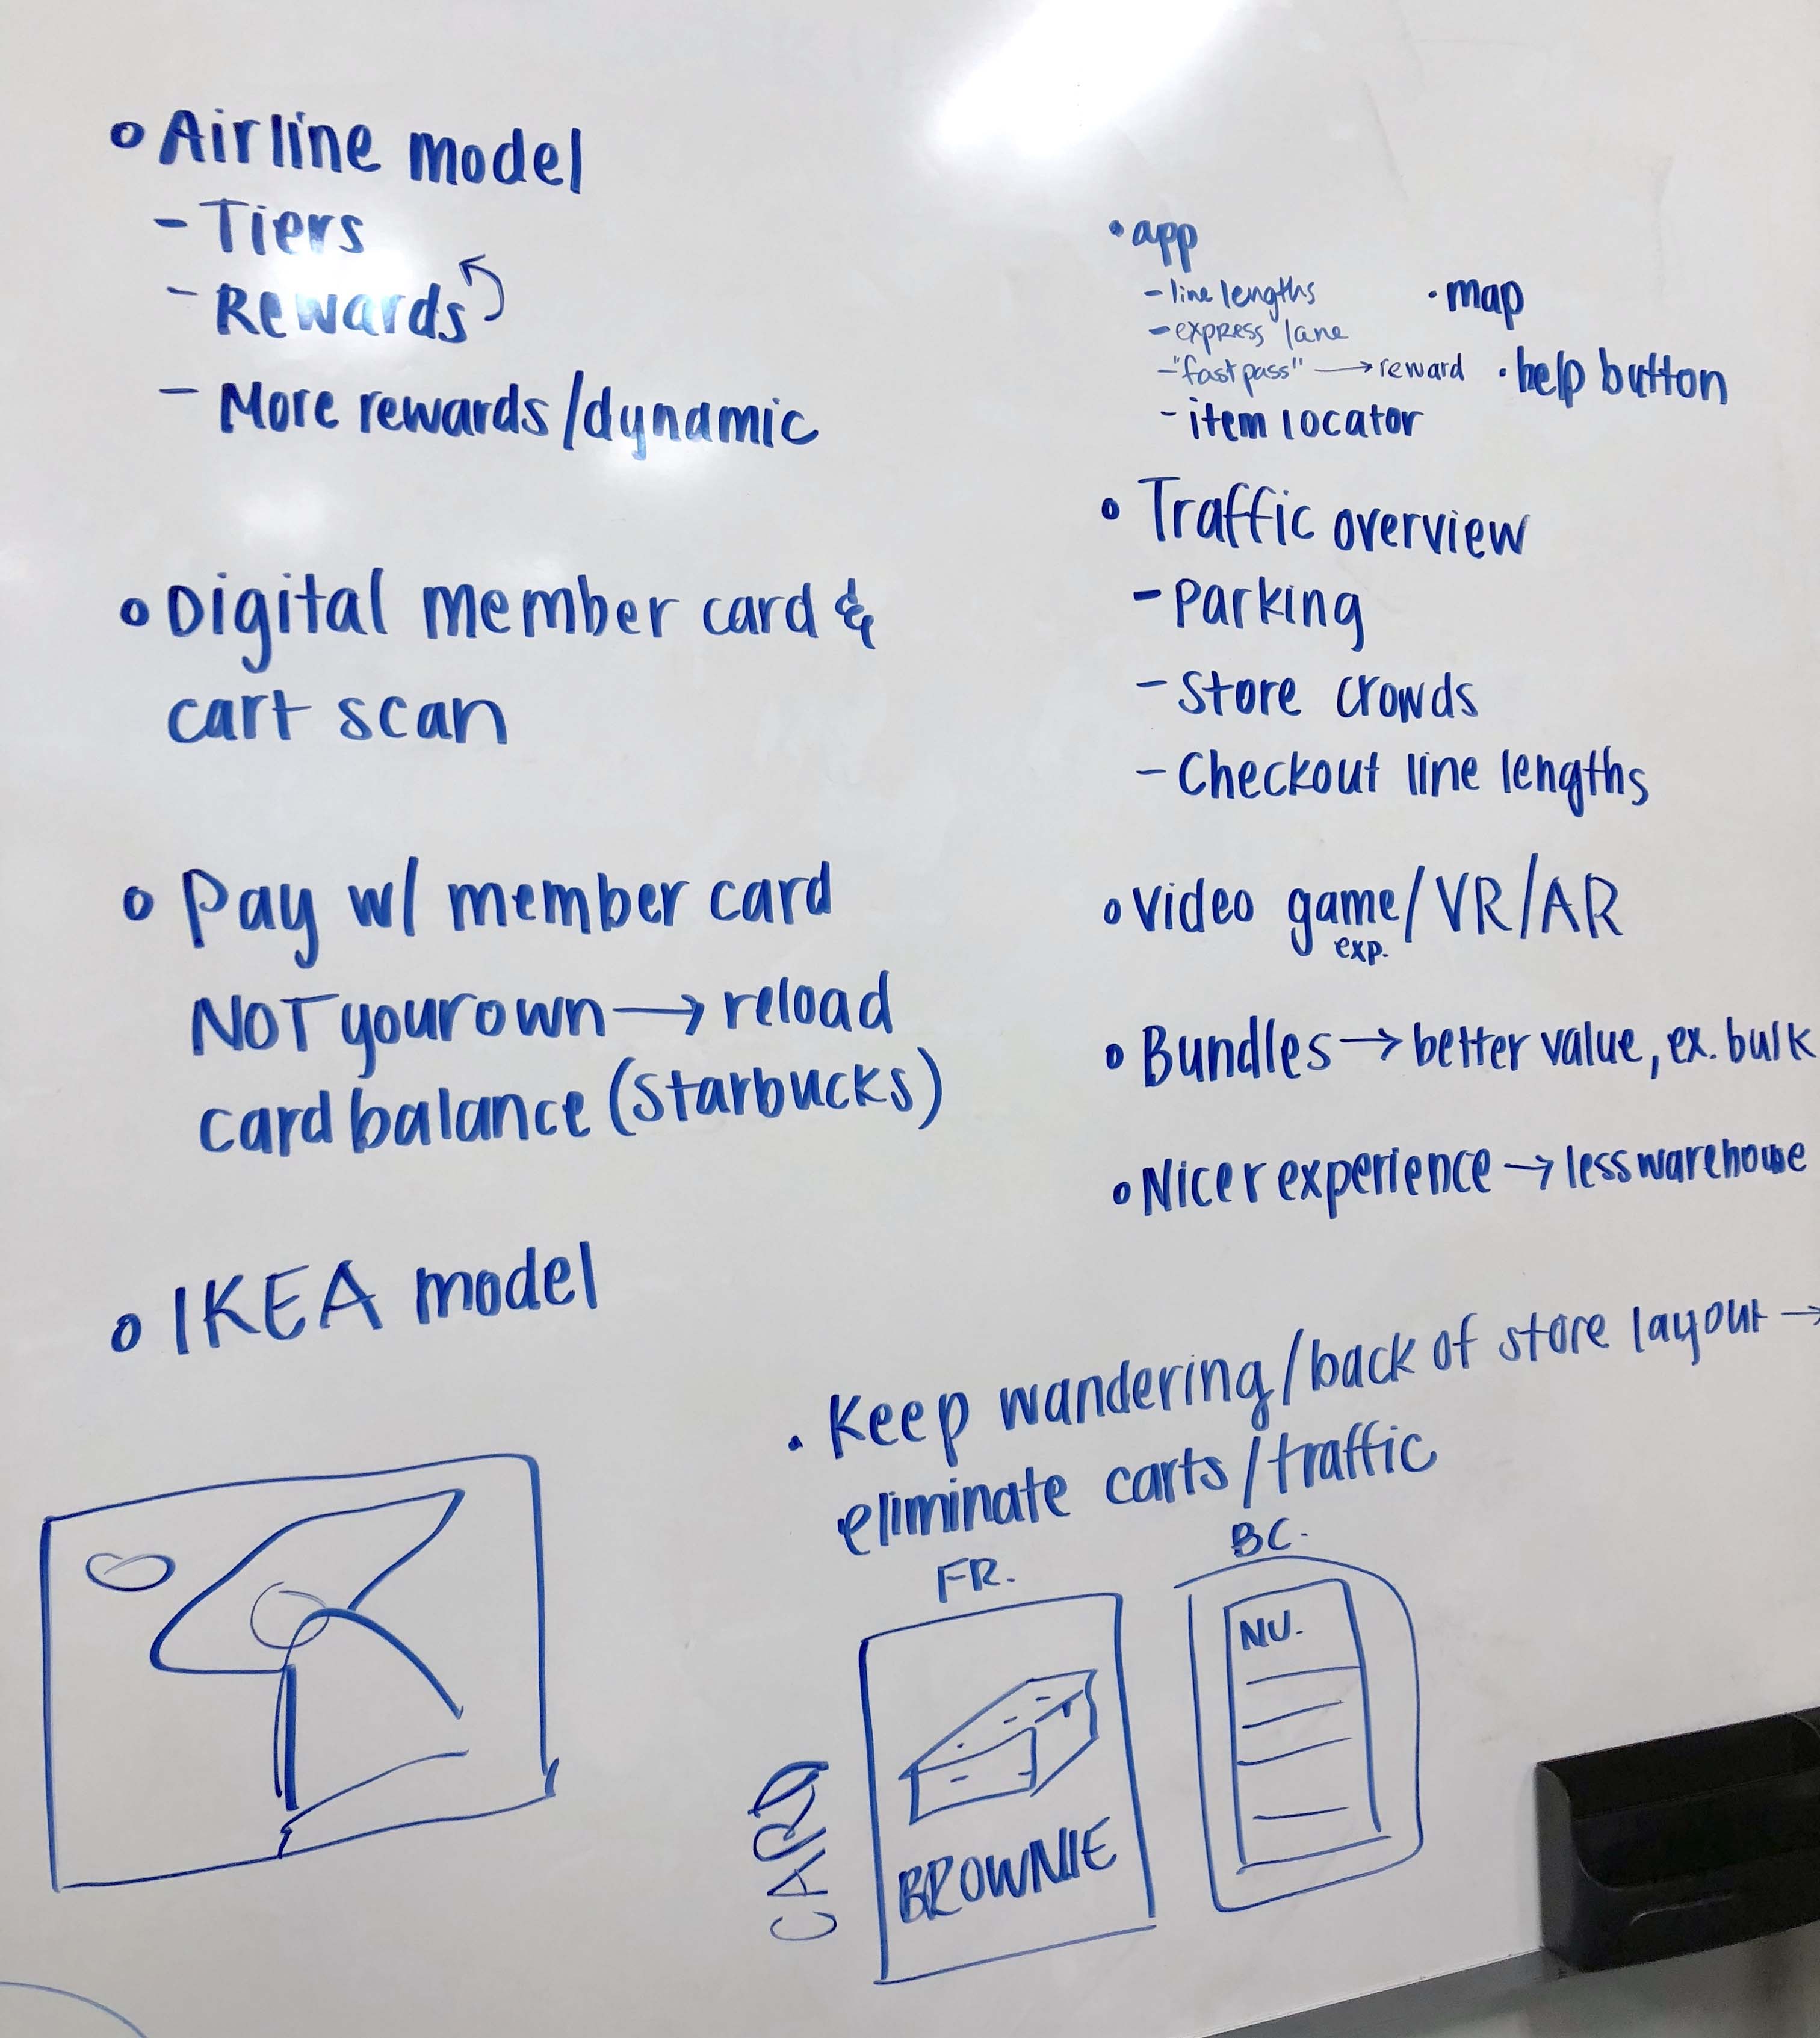 o Airline model
- Tiers
- Rewards
- More rewards/dynamic
o Digital member card &
cart scan
o Pay w/ member card
NOT your own → reload
card balance (Starbucks)
o IKEA model
• app
- line lengths
- express lane
- "fastpass" → reward
- item locator
• map
• help button
o Traffic overview
- Parking
- Store crowds
- Checkout line lengths
o Video game/VR/AR
exp.
o Bundles → better value, ex. bulk
o Nicer experience → less warehouse
• Keep wandering/back of store layout →
eliminate carts/traffic
CARD
FR.
BROWNIE
BC.
NU.